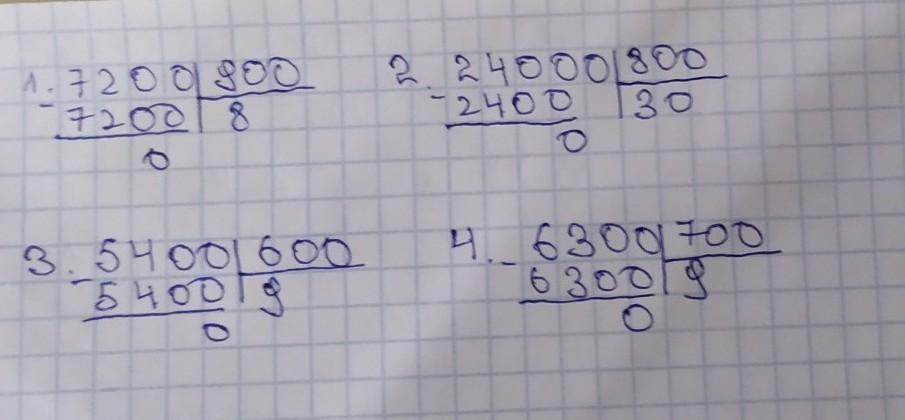 1. 7200 900
- 7200 8
0
2. 24000 800
- 2400 30
0
3. 5400 600
- 5400 9
0
4. 6300 700
- 6300 9
0